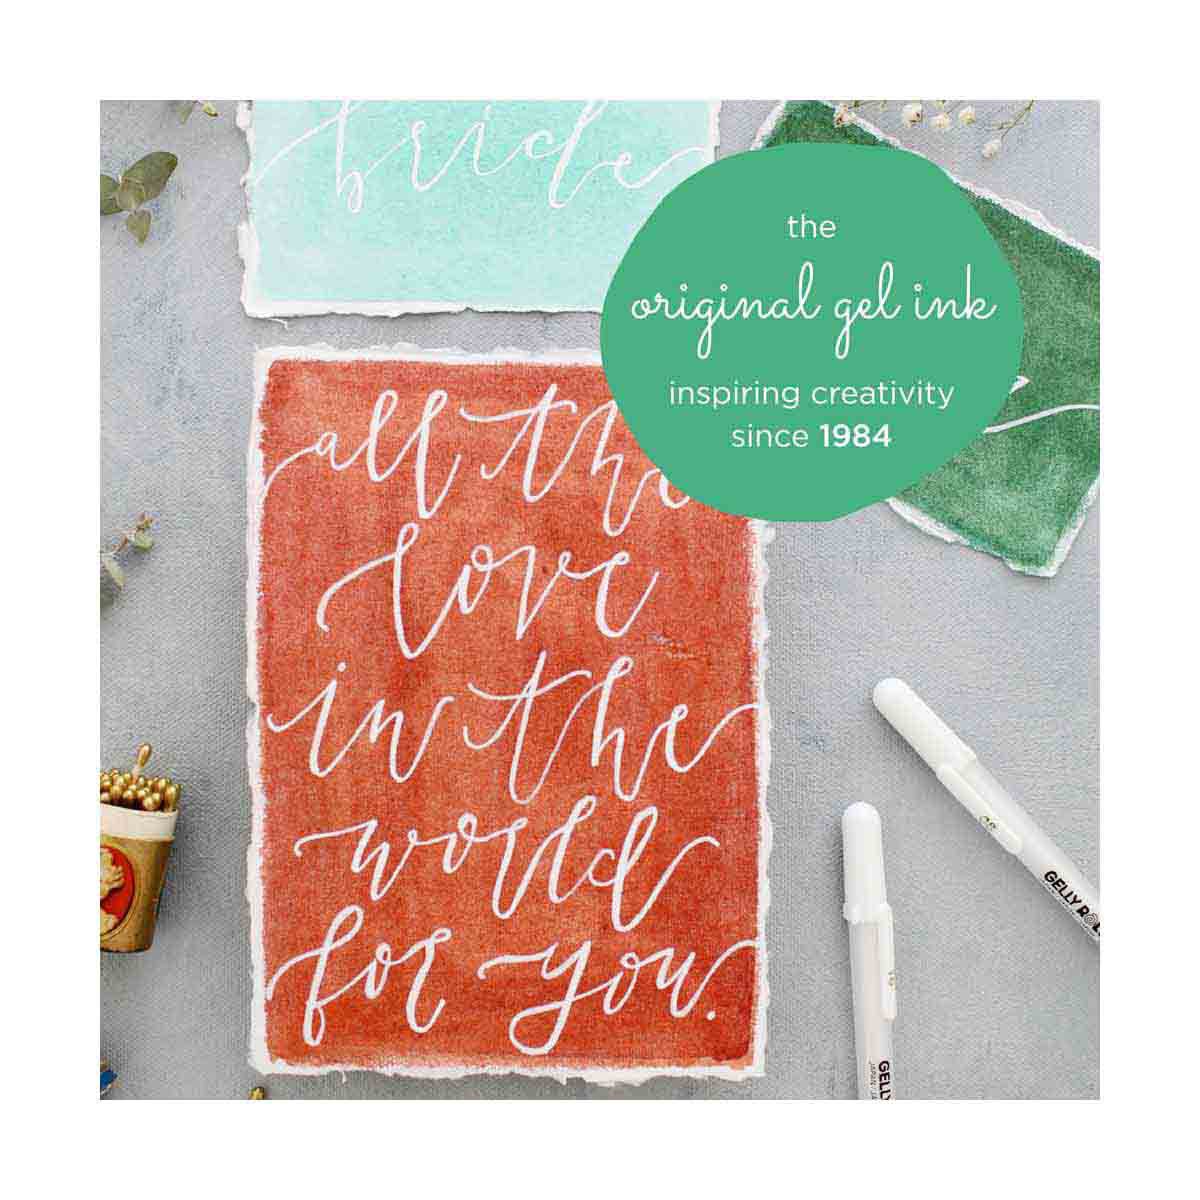 bride
the
original gel ink
inspiring creativity
since 1984
all the
love
in the
world
for you.
GELLY
GELLY
JAPAN